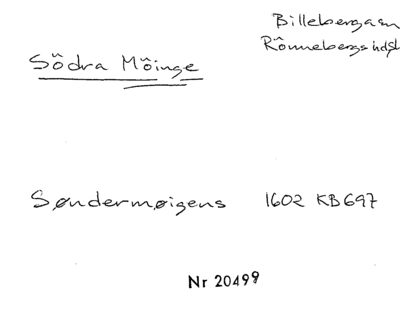 Billeberga sn
Rönnebergs hdsk
Södra Möinge
Søndermøigens 1602 KB697
Nr 20499